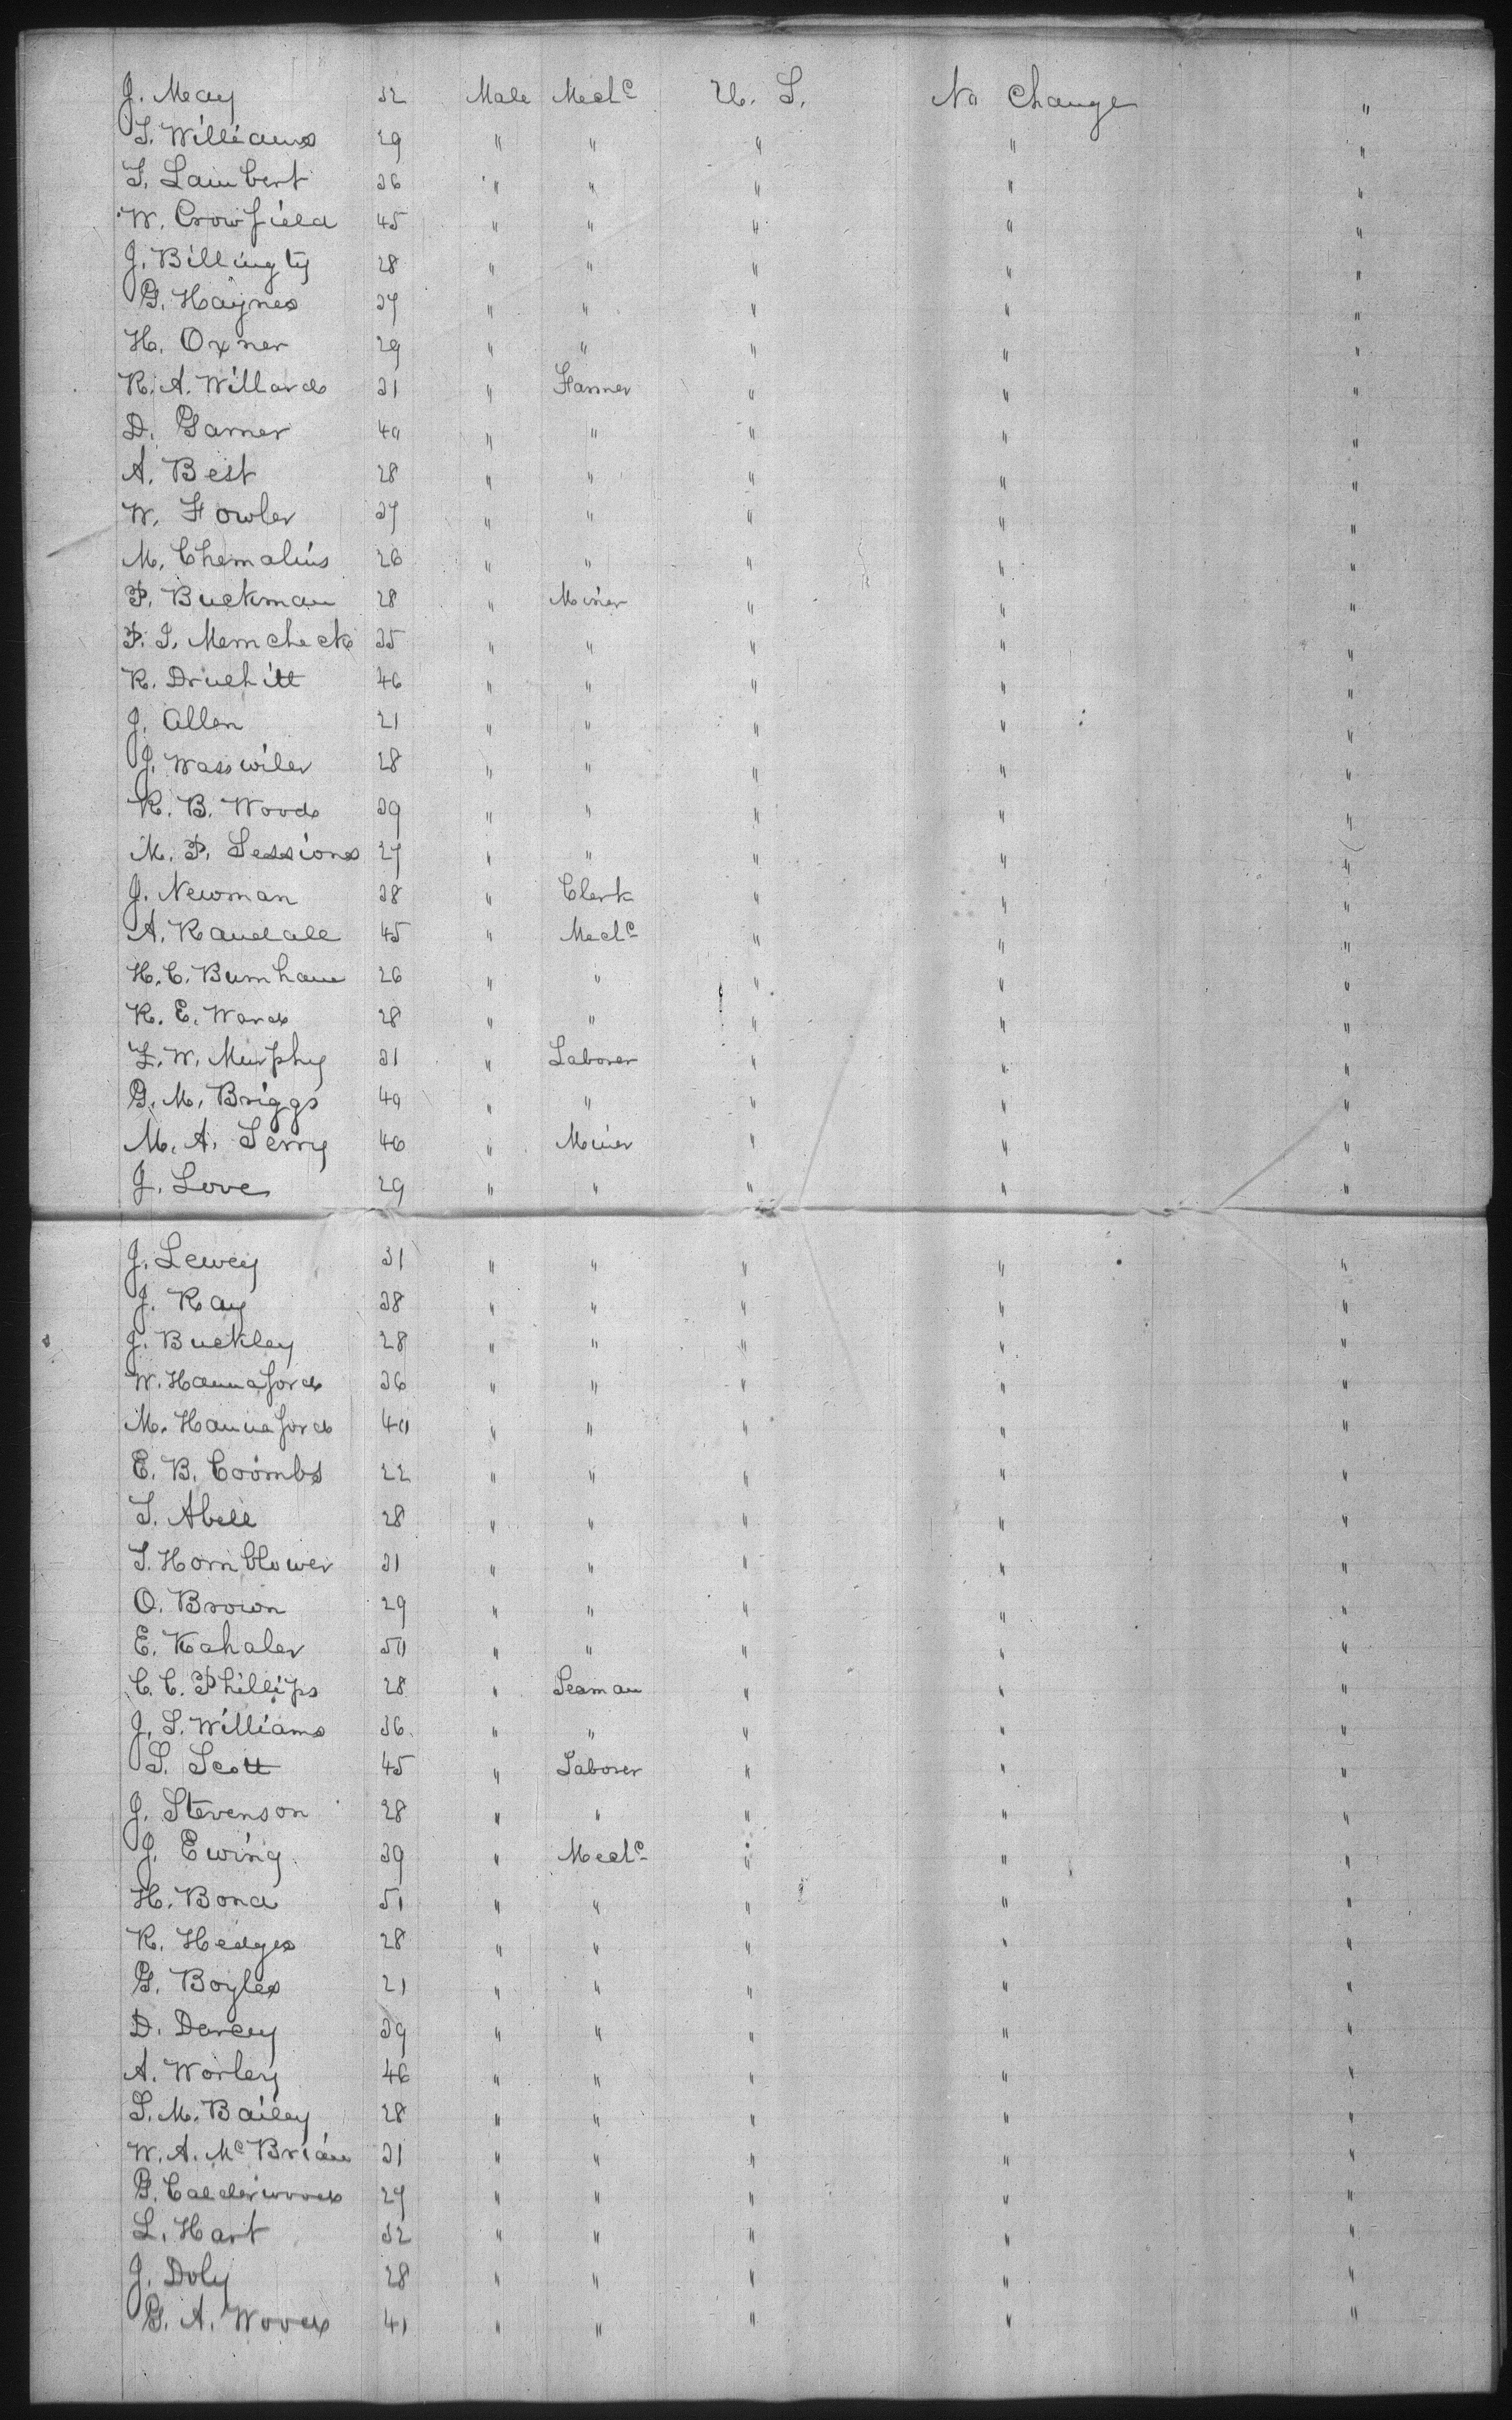 J. May 32 Male Mech^c U. S. No Change "
T. Williams 29 " " " " "
T. Lambert 36 " " " " "
W. Crowfield 45 " " " " "
J. Billingty 28 " " " " "
G. Haynes 37 " " " " "
H. Oxner 29 " " " " "
R. A. Willard 31 " Farmer " " "
D. Garner 40 " " " " "
A. Best 28 " " " " "
W. Fowler 37 " " " " "
M. Chemalins 26 " " " " "
P. Buckman 28 " Miner " " "
P. I. Memcheck 35 " " " " "
R. Druehitt 46 " " " " "
J. Allen 21 " " " " "
J. Wasswiler 28 " " " " "
R. B. Wood 39 " " " " "
M. P. Sessions 27 " " " " "
J. Newman 38 " Clerk " " "
A. Randall 45 " Mech^c " " "
H. C. Burnham 26 " " " " "
R. E. Ward 28 " " " " "
F. W. Murphy 31 " Laborer " " "
G. M. Briggs 40 " " " " "
M. A. Terry 46 " Miner " " "
J. Love 29 " " " " "
J. Lewey 31 " " " " "
J. Ray 38 " " " " "
J. Buckley 28 " " " " "
W. Hannaford 36 " " " " "
M. Hannaford 40 " " " " "
E. B. Coombs 22 " " " " "
T. Abell 28 " " " " "
T. Hornblower 31 " " " " "
O. Brown 29 " " " " "
E. Kahaler 50 " " " " "
C. C. Phillips 28 " Seaman " " "
J. S. Williams 36 " " " " "
S. Scott 45 " Laborer " " "
J. Stevenson 28 " " " " "
J. Ewing 39 " Mech^c " " "
H. Bond 51 " " " " "
R. Hedges 28 " " " " "
G. Boyles 21 " " " " "
D. Darcey 39 " " " " "
A. Worley 46 " " " " "
S. M. Bailey 28 " " " " "
W. A. McBrian 31 " " " " "
G. Calderwood 27 " " " " "
L. Hart 32 " " " " "
J. Doly 28 " " " " "
G. A. Wood 41 " " " " "